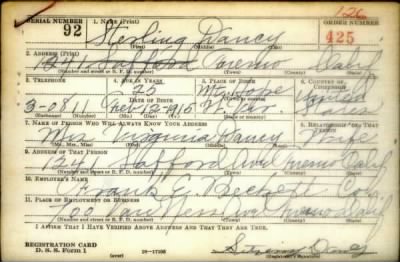 SERIAL NUMBER 1. NAME (Print) 126 ORDER NUMBER
92 Sterling Dancy 425
(First) (Middle) (Last)
2. ADDRESS (Print)
1241 Safford Fresno Calif
(Number and street or R. F. D. number) (Town) (County) (State)
3. TELEPHONE 4. AGE IN YEARS 5. PLACE OF BIRTH 6. COUNTRY OF CITIZENSHIP
25 Mt. Hope
DATE OF BIRTH United
3-0811 1915 States
(Exchange) (Number) (Mo.) (Day) (Yr.) (State or country)
7. NAME OF PERSON WHO WILL ALWAYS KNOW YOUR ADDRESS 8. RELATIONSHIP OF THAT PERSON
Mrs. Virginia Dancy Wife
(Mr., Mrs., Miss) (First) (Middle) (Last)
9. ADDRESS OF THAT PERSON
1241 Safford Fresno Calif
(Number and street or R. F. D. number) (Town) (County) (State)
10. EMPLOYER'S NAME
Frank Beckett Co.
11. PLACE OF EMPLOYMENT OR BUSINESS
700 Van Ness Ave Fresno Calif
(Number and street or R. F. D. number) (Town) (County) (State)
I AFFIRM THAT I HAVE VERIFIED ABOVE ANSWERS AND THAT THEY ARE TRUE.
REGISTRATION CARD
D. S. S. Form 1 (over) Sterling Dancy
(Registrant's signature)